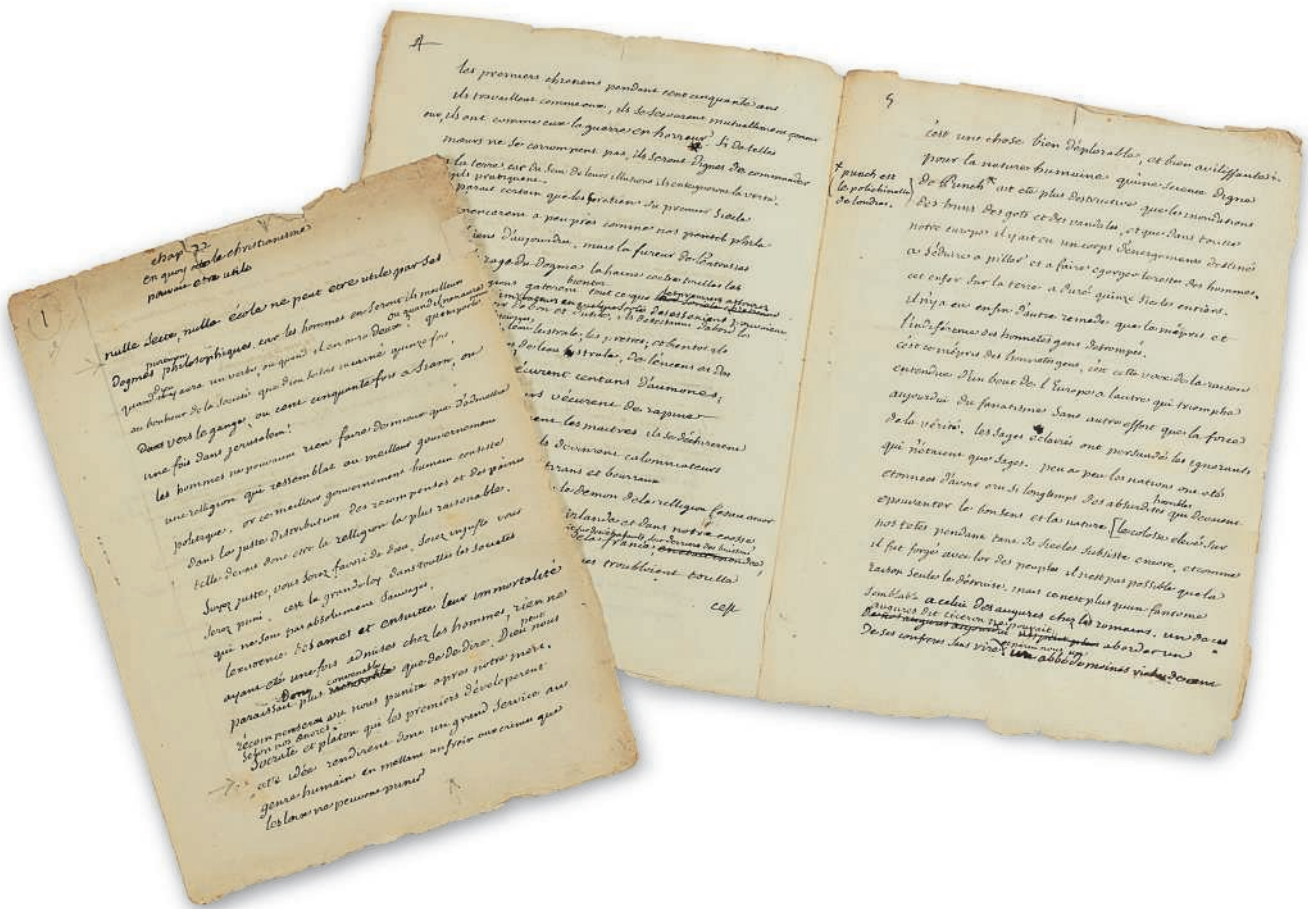 1
chap 22
en quoy le christianisme
pouvait etre utile
nulle secte, nulle école ne peut etre utile par ses
dogmes philosophiques. car les hommes en seront ils meilleurs
pourquoy
quand dieu aura un verbe, ou quand il en aura deux?
ou quand
au bonheur de la societé que dieu se soit incarné quinze fois
vers le gange, ou cent cinquante fois a siam, ou
une fois dans jerusalem!
les hommes ne pouvaient rien faire de mieux que d'admettre
une relligion qui ressemblat au meilleur gouvernement
politique. or ce meilleur gouvernement humain consiste
dans la juste distribution des recompenses et des peines
telle devait donc etre la relligion la plus raisonable.
soyez juste, vous serez favori de dieu. soyez injuste vous
serez puni. c'est la grande loy dans touttes les societés
qui ne sont pas absolument sauvages.
l'existence des ames et ensuitte leur immortalité
ayant eté une fois admises chez les hommes, rien ne
convenable
paraissait plus que de dire. Dieu peut nous
récompenser ou nous punir apres notre mort.
selon nos œuvres.
Socrate et platon qui les premiers développerent
cette idée rendirent donc un grand service au
genre humain en mettant un frein aux crimes que
les loix ne peuvent punir
4
les premiers chretiens pendant cent cinquante ans
ils travaillent comme eux, ils se secourent mutuellement comme
eux, ils ont comme eux la guerre en horreur. Si de telles
mœurs ne se corrompent pas, ils seront dignes de commander
a la terre car du sein de leurs illusions ils enseigneront la vertu
qu'ils pratiquent.
parait certain que les chretiens du premier siecle
commencerent a peu près comme nos
d'aujourdui. mais la fureur de l'entousi
rage du dogme la haine contre touttes les
bientot
gaterent tout ce que
de bon et d'utile, ils detestaient d'abord
leau lustrale, les pretres, et bientot ils
de leau lustrale, de l'encens et des
vécurent cent ans d'aumones,
vécurent de rapine
les maitres ils se déchirerent
devinrent calomniateurs
tirans et bouraux
le demon de la relligion
irlande et dans notre ecosse
de la france
troublaient toutte
cest
5
c'est une chose bien déplorable, et bien avilissante
pour la nature humaine qu'une science digne
de Punch* ait eté plus destructive que les inondations
* punch est
le polichinelle
de londres.
des huns des gots et des vandales, et que dans toutte
notre europe il y ait eu un corps d'energumenes destinés
a séduire a piller et a faire egorger le reste des hommes.
cet enfer sur la terre a duré quinze siecles entiers.
il n'y a eu enfin d'autre remede que le mépris et
l'indiference des honnetes gens detrompés.
c'est ce mépris des honnetes gens, c'est cette voix de la raison
entendue d'un bout de l'Europe a l'autre qui triomphe
aujourdui du fanatisme sans autre effort que la force
de la vérité. les sages éclairés ont persuadé les ignorants
qui n'étaient que sages. peu a peu les nations ont eté
etonnées d'avoir cru si longtemps des absurdités horribles qui devaient
epouvanter le bon sens et la nature [le colosse elevé sur
nos tetes pendant tant de siecles subsiste encore, et comme
il fut forgé avec l'or des peuples il n'est pas possible que la
raison seule le détruise. mais ce n'est plus qu'un fantome
semblable a celui des augures chez les romains. un de ces
augures dit ciceron ne pouvait
aborder un
de ses confreres sans rire
et parmi nous un
abbé de moines riche de cent